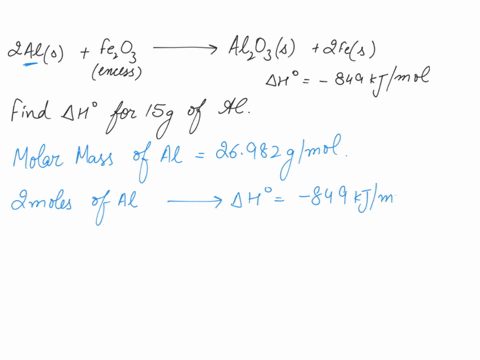 2Al(s) + Fe₂O₃ ⟶ Al₂O₃(s) + 2Fe(s)
(excess)
ΔH° = - 849 kJ/mol
Find ΔH° for 15g of Al.
Molar Mass of Al = 26.982 g/mol.
2moles of Al ⟶ ΔH° = -849 kJ/m